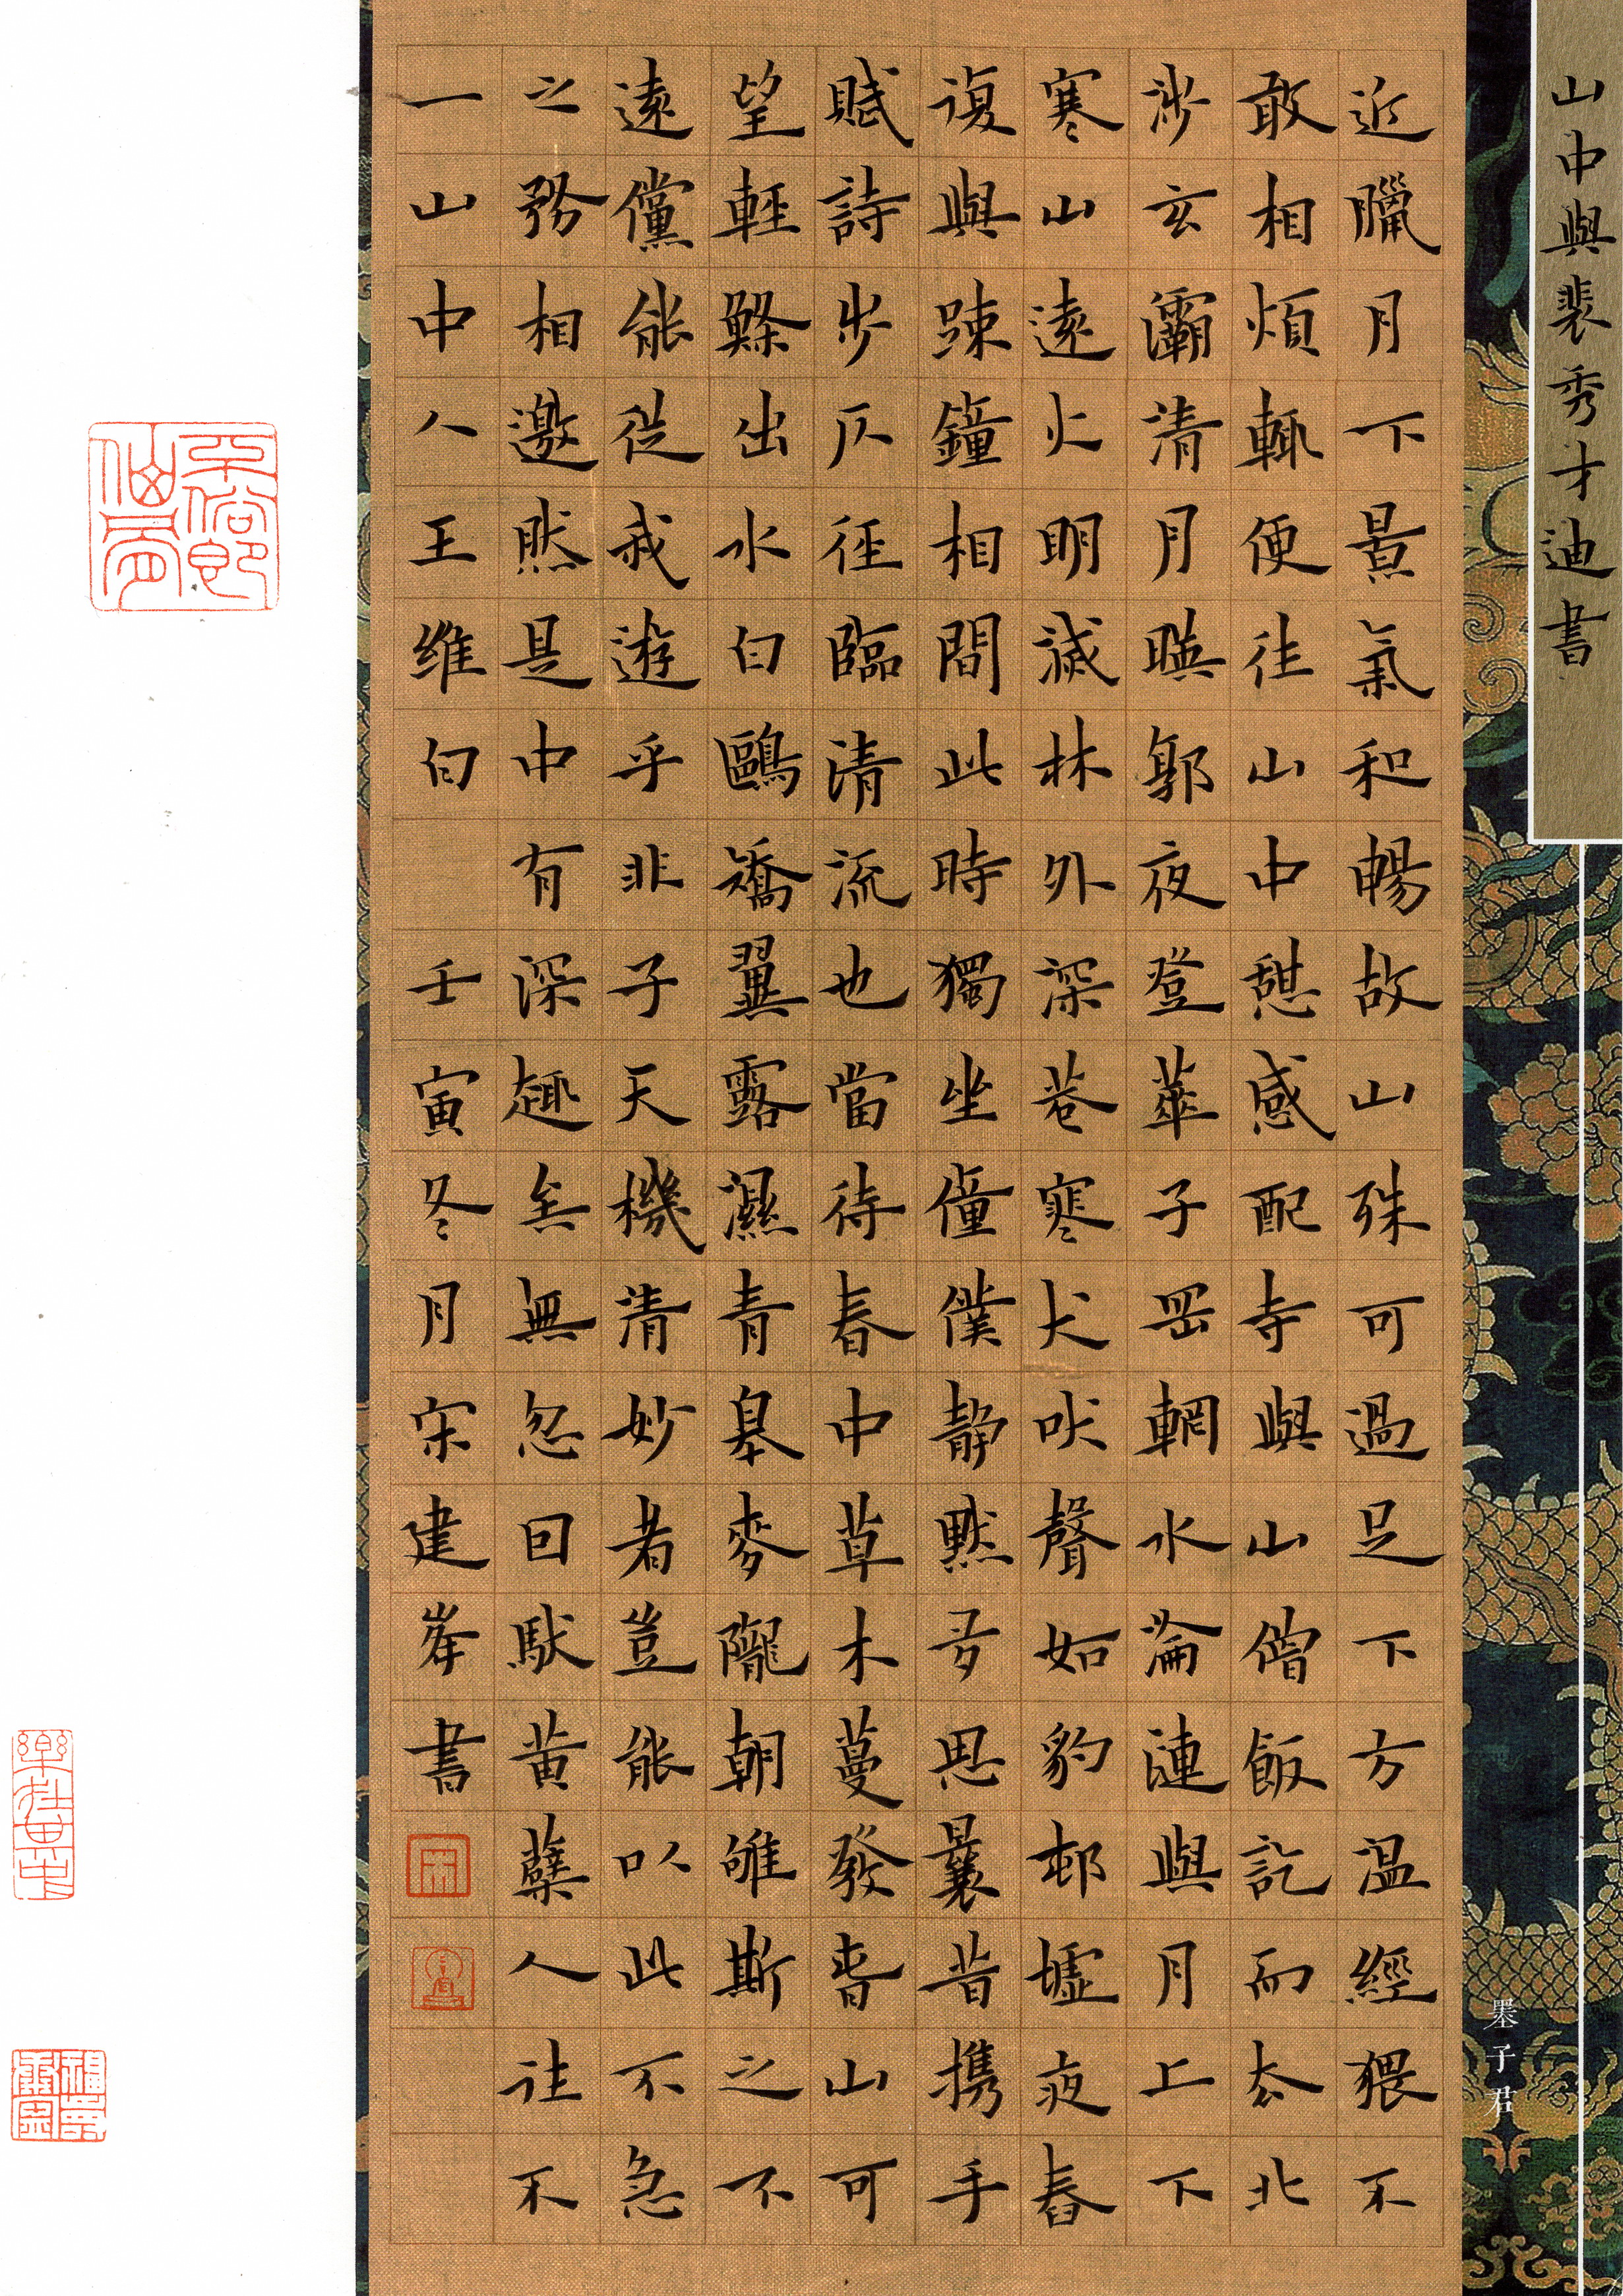 山中與裴秀才迪書
近臘月下景氣和暢故山殊可過足下方温經猥不
敢相煩輒便往山中憇感配寺與山僧飯訖而去北
涉玄灞清月暎郭夜登華子岡輞水淪漣與月上下
寒山遠火明滅林外深巷寒犬吠聲如豹邨墟夜舂
復與踈鐘相間此時獨坐僮僕静黙多思曩昔携手
賦詩步仄徑臨清流也當待春中草木蔓發春山可
望輕鯈出水白鷗矯翼露濕青皋麥隴朝雊斯之不
遠儻能從我遊乎非子天機清妙者豈能以此不急
之務相邀然是中有深趣矣無忽因馱黄蘗人往不
一山中人王维白 壬寅冬月宋建峯書
墨子君